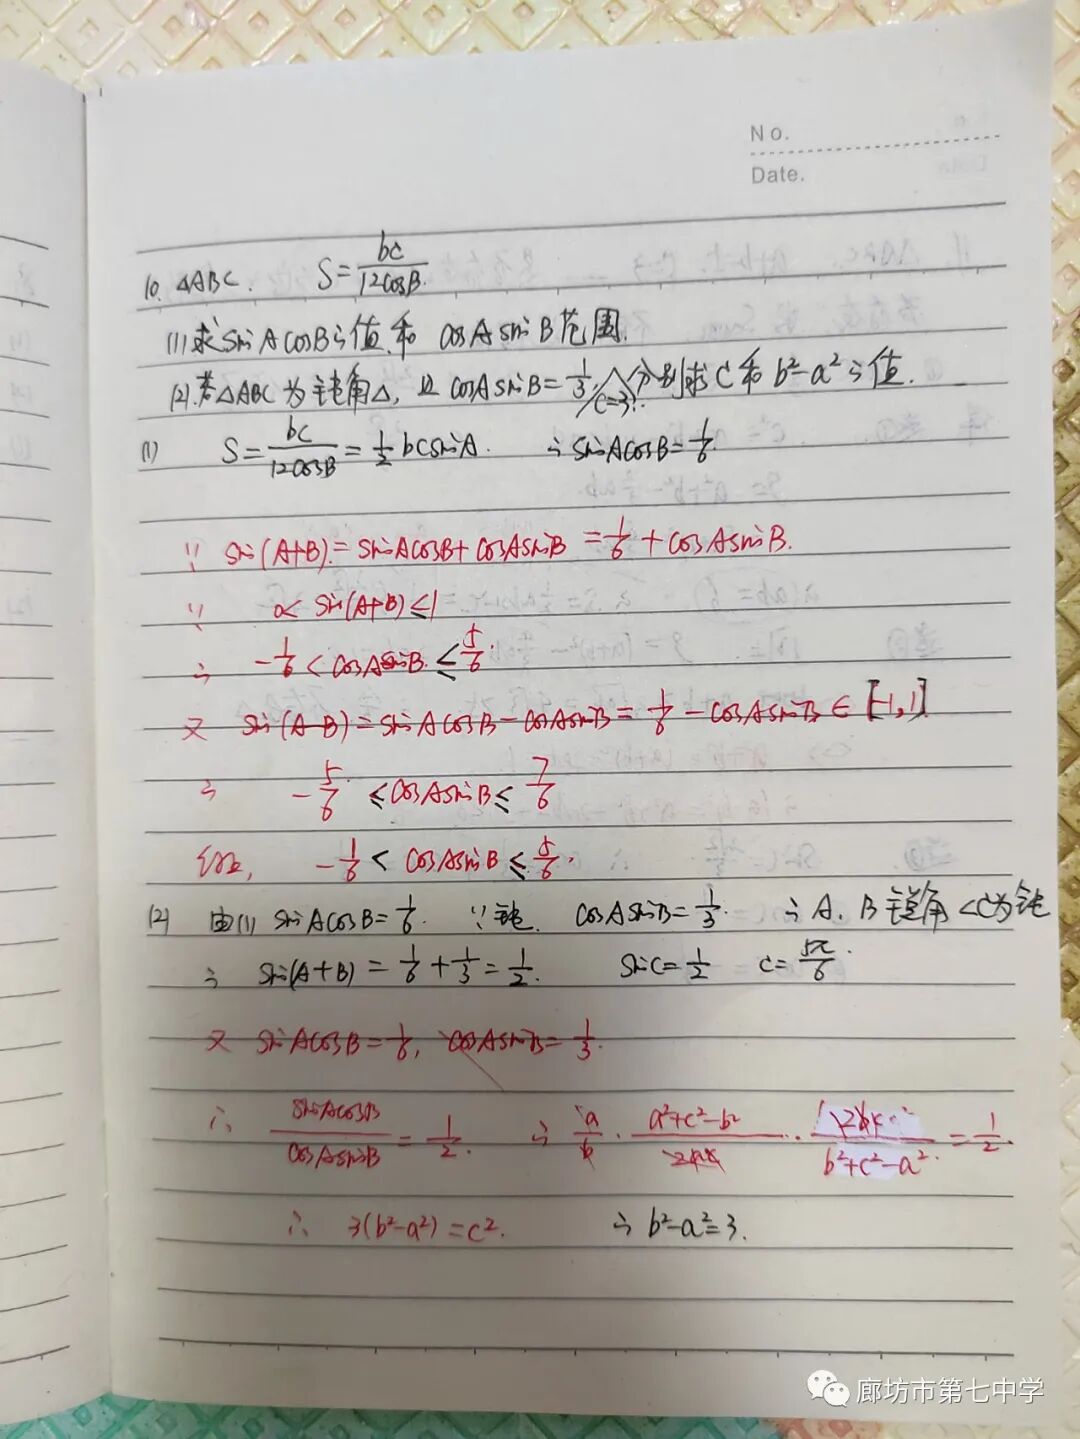 No.
Date.
10. △ABC. S=bc/12cosB.
(1) 求sinAcosB之值和 cosAsinB范围.
(2) 若△ABC为钝角△, 且 cosAsinB=1/3, c=3, 分别求C和b²-a²之值.
(1) S=bc/12cosB=1/2bcsinA. ∴sinAcosB=1/6.
∵ sin(A+B)=sinAcosB+cosAsinB=1/6+cosAsinB.
∵ 0<sin(A+B)≤1
∴ -1/6<cosAsinB≤5/6.
又 sin(A-B)=sinAcosB-cosAsinB=1/6-cosAsinB∈[-1,1]
∴ -5/6≤cosAsinB≤7/6
综上, -1/6<cosAsinB≤5/6.
(2) 由(1) sinAcosB=1/6. ∵钝. cosAsinB=1/3. ∴A、B锐角<C为钝
∴ sin(A+B)=1/6+1/3=1/2. sinC=1/2 C=5π/6.
又 sinAcosB=1/6, cosAsinB=1/3.
∴ sinAcosB/cosAsinB=1/2. ∴ a/b·(a²+c²-b²)/2ac·2bc/(b²+c²-a²)=1/2.
∴ 3(b²-a²)=c². ∴b²-a²=3.
廊坊市第七中学